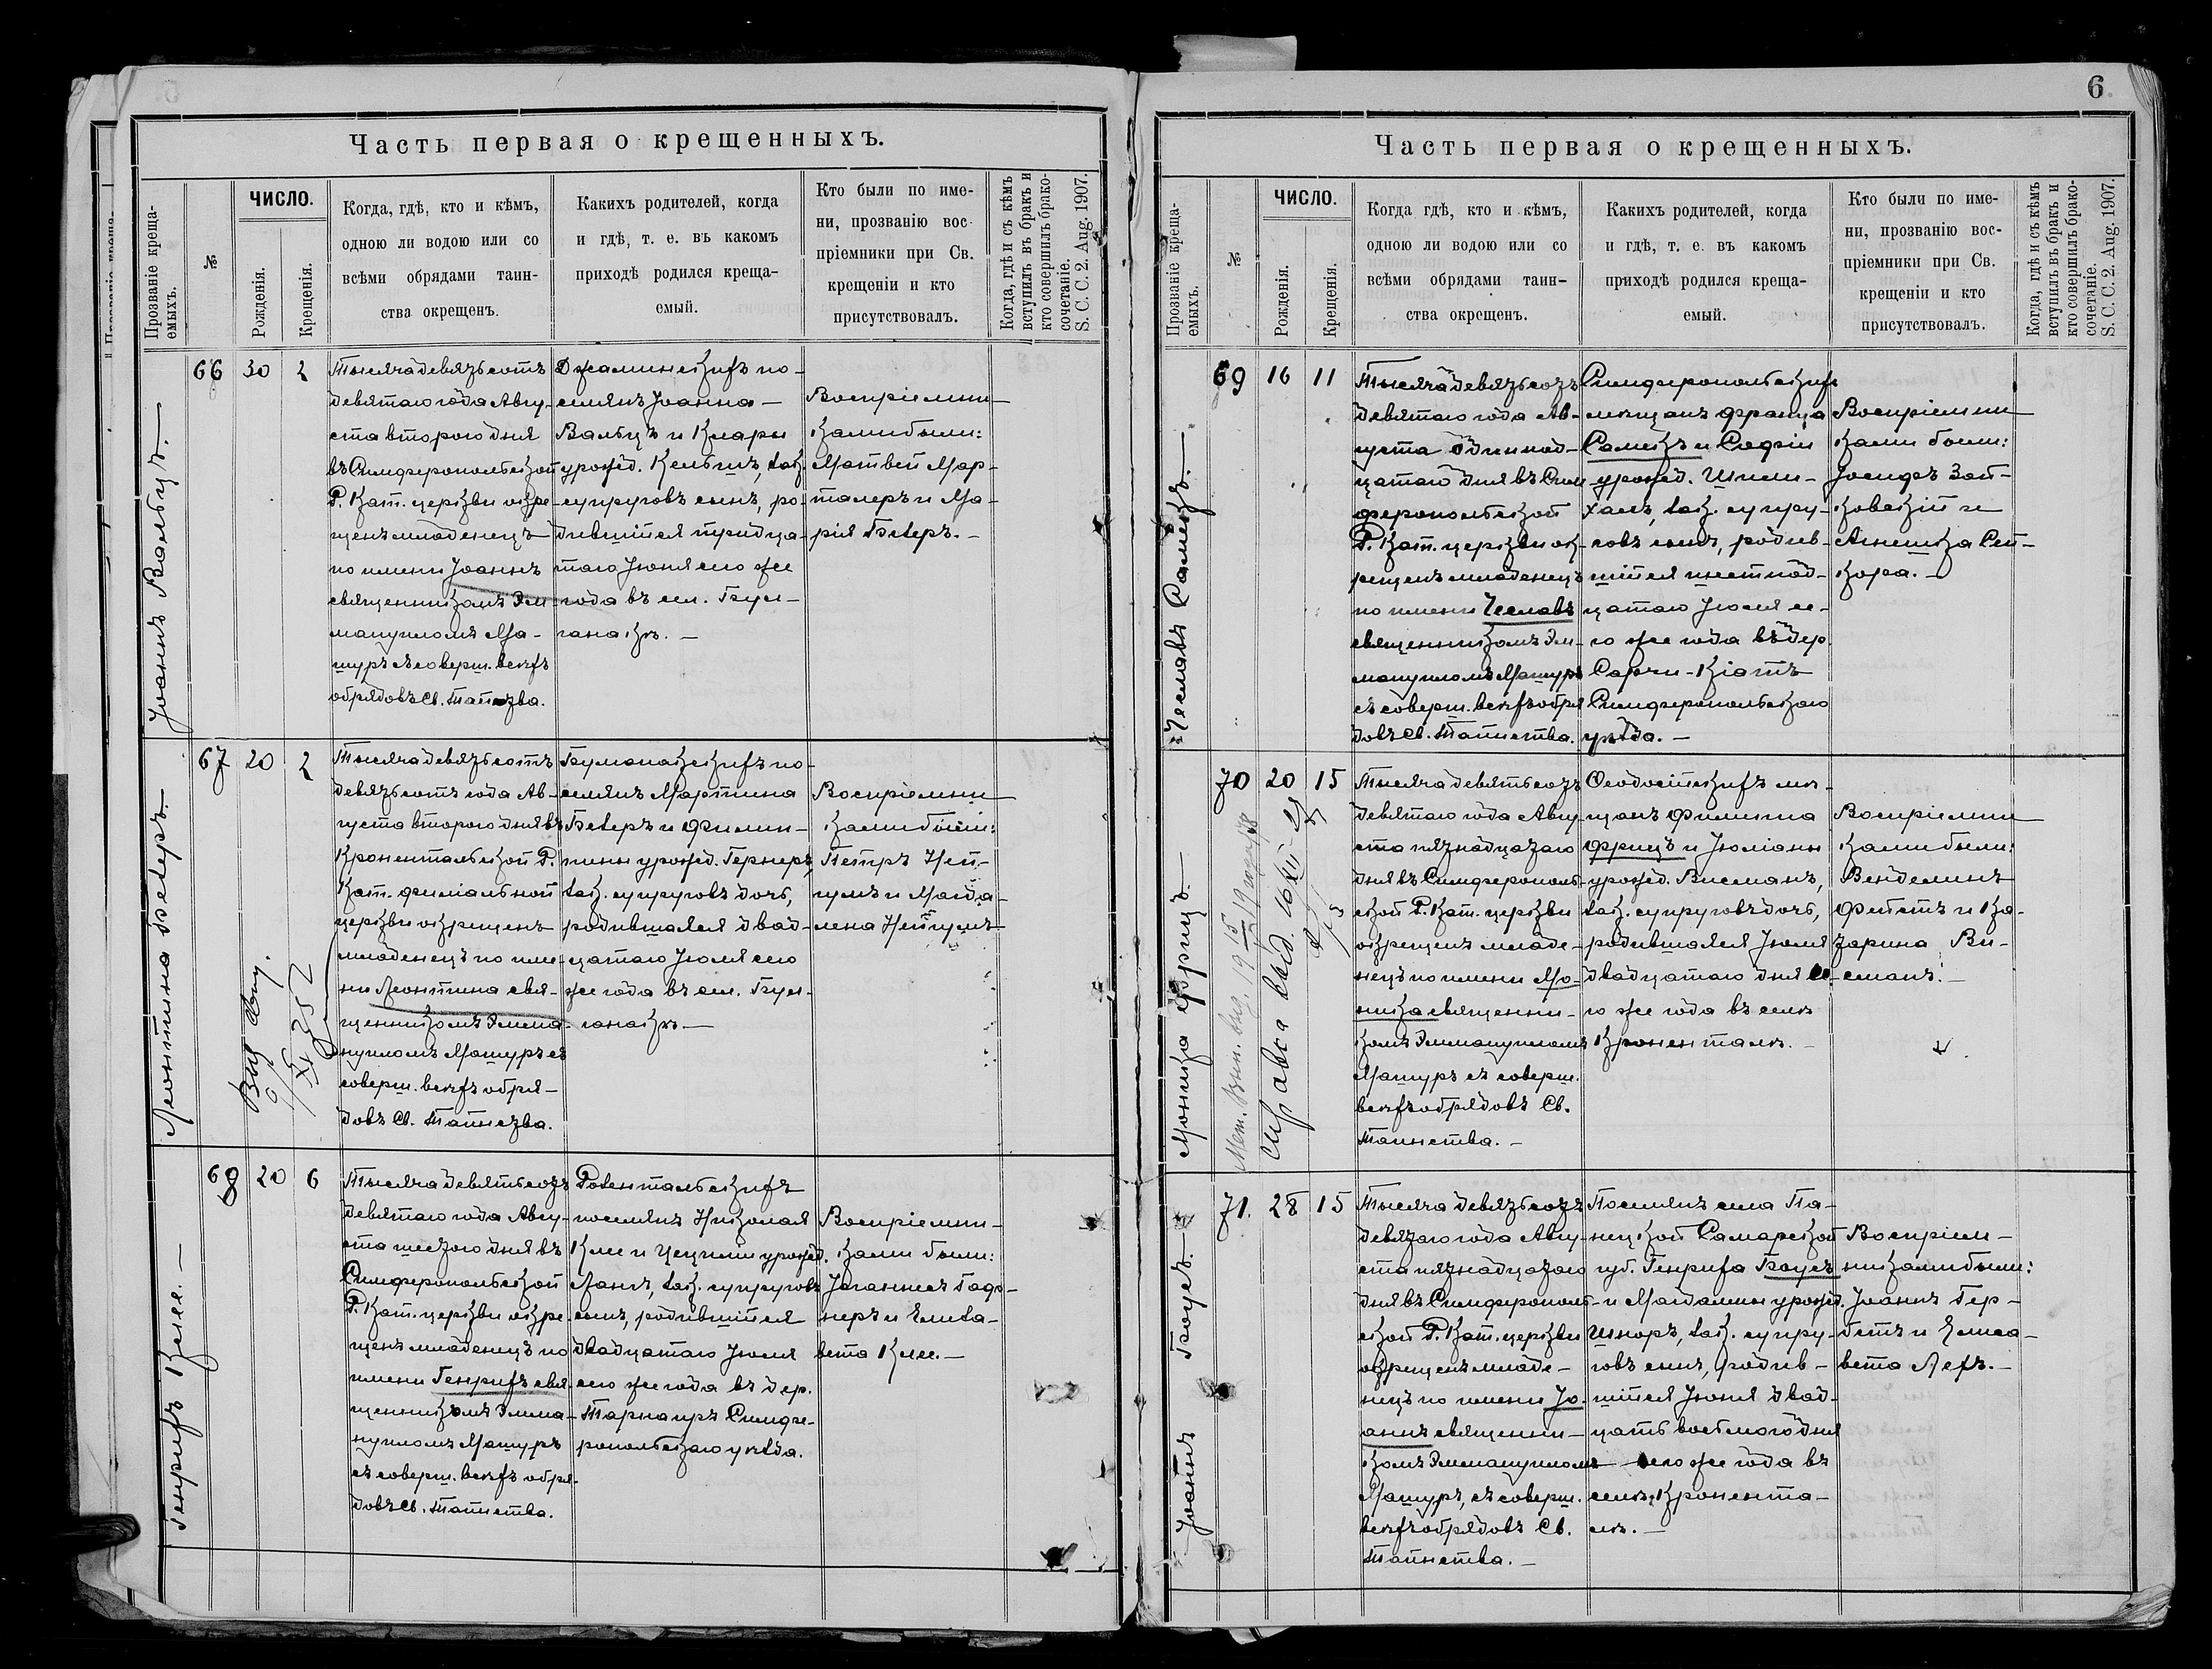 6
Часть первая о крещенныхъ.
Прозваніе креща-
емыхъ.
№
ЧИСЛО.
Рожденія.
Крещенія.
Когда, гдѣ, кто и кѣмъ,
одною ли водою или со
всѣми обрядами таин-
ства окрещенъ.
Какихъ родителей, когда
и гдѣ, т. е. въ какомъ
приходѣ родился креща-
емый.
Кто были по име-
ни, прозванію вос-
пріемники при Св.
крещеніи и кто
присутствовалъ.
Когда, гдѣ и съ кѣмъ
вступилъ въ бракъ и
кто совершилъ брако-
сочетаніе.
S. C. C. 2. Aug. 1907.
Іоаннъ Вальцъ.—
66
30
2
Тысяча девятьсотъ
девятаго года Авгу-
ста второго дня
въ Симферопольской
Р. Кат. церкви окре-
щенъ младенецъ
по имени Іоаннъ
священникомъ Эм-
мануиломъ Машуръ
съ соверш. всѣхъ
обрядовъ Св. Таинства.
поселянъ Іоанна
Вальцъ и Клары
урожд. Кельшъ, зак.
супруговъ сынъ, ро-
дившійся тридца-
таго Іюня сего же
года въ сел.
Воспріемни-
ками были:
Матвей Мар-
талеръ и Ма-
рія Бегеръ.—
Леонтина Бегеръ.—
67
20
2
Тысяча девятьсотъ
девятьсотъ года Ав-
густа второго дня въ
Кронентальской Р.
Кат. филіальной
церкви окрещенъ
младенецъ по име-
ни Леонтина свя-
щенникомъ Эмма-
нуиломъ Машуръ съ
соверш. всѣхъ обря-
довъ Св. Таинства.
поселянъ Мартина
Бегеръ и Филип-
пины урожд. Гернеръ,
зак. супруговъ дочь,
родившаяся двад-
цатаго Іюля сего
же года въ сел.
Воспріемни-
ками были:
Петръ Ней-
гумъ и Магда-
лена Нейгумъ
Генрихъ Клее.—
68
20
6
Тысяча девятьсотъ
девятаго года Авгу-
ста шестого дня въ
Симферопольской
Р. Кат. церкви окре-
щенъ младенецъ по
имени Генрихъ свя-
щенникомъ Эмма-
нуиломъ Машуръ
съ соверш. всѣхъ обря-
довъ Св. Таинства.
Розентальскихъ
поселянъ Николая
Клее и Цециліи урожд.
Лангъ, зак. супруговъ
сынъ, родившійся
двадцатаго Іюля
сего же года въ дер.
Симфе-
ропольскаго уѣзда.
Воспріемни-
ками были:
Іоганнесъ
и Елиза-
вета Клее.—
Часть первая о крещенныхъ.
Прозваніе креща-
емыхъ.
№
ЧИСЛО.
Рожденія.
Крещенія.
Когда гдѣ, кто и кѣмъ,
одною ли водою или со
всѣми обрядами таин-
ства окрещенъ.
Какихъ родителей, когда
и гдѣ, т. е. въ какомъ
приходѣ родился креща-
емый.
Кто были по име-
ни, прозванію вос-
пріемники при Св.
крещеніи и кто
присутствовалъ.
Когда, гдѣ и съ кѣмъ
вступилъ въ бракъ и
кто совершилъ брако-
сочетаніе.
S. C. C. 2. Aug. 1907.
Чеславъ Самекъ.—
69
16
11
Тысяча девятьсотъ
девятаго года Ав-
густа одиннад-
цатаго дня въ Сим-
феропольской
Р. Кат. церкви ок-
рещенъ младенецъ
по имени Чеславъ
священникомъ Эм-
мануиломъ Машуръ
съ соверш. всѣхъ обря-
довъ Св. Таинства.
Симферопольскихъ
мѣщанъ Франца
Самекъ и Софіи
урожд.
зак. супру-
говъ сынъ, родив-
шійся шестнад-
цатаго Іюля се-
го же года въ дер.
Сарчи-Кіатъ
Симферопольскаго
уѣзда.—
Воспріемни-
ками были:
Іосифъ Зай-
ковскій и
Моника Фрицъ.—
70
20
15
Тысяча девятьсотъ
девятаго года Авгу-
ста пятнадцатаго
дня въ Симферополь-
ской Р. Кат. церкви
окрещенъ младе-
нецъ по имени Мо-
ника священни-
комъ Эммануиломъ
Машуръ съ соверш.
всѣхъ обрядовъ Св.
Таинства.—
Ѳеодосійскихъ мѣ-
щанъ Филиппа
Фрицъ и Юліаны
урожд. Висманъ,
зак. супруговъ дочь,
родившаяся Іюля
двадцатаго дня се-
го же года въ селѣ
Кроненталѣ.—
Воспріемни-
ками были:
Венделинъ
и Ка-
тарина Ви-
сманъ.—
Іоаннъ Броусъ.—
71.
28
15
Тысяча девятьсотъ
девятаго года Авгу-
ста пятнадцатаго
дня въ Симферополь-
ской Р. Кат. церкви
окрещенъ младе-
нецъ по имени Іо-
аннъ священни-
комъ Эммануиломъ
Машуръ, съ соверш.
всѣхъ обрядовъ Св.
Таинства.—
Поселянъ села Па-
ницкой Самарской
губ. Генриха Броусъ
и Магдалины урожд.
Шноръ, зак. супру-
говъ сынъ, родив-
шійся Іюня двад-
цать восьмого дня
сего же года въ
селѣ Кронента-
лѣ.—
Воспріем-
никами были:
Іоаннъ Гер-
бетъ и Елиса-
вета Лехъ.—